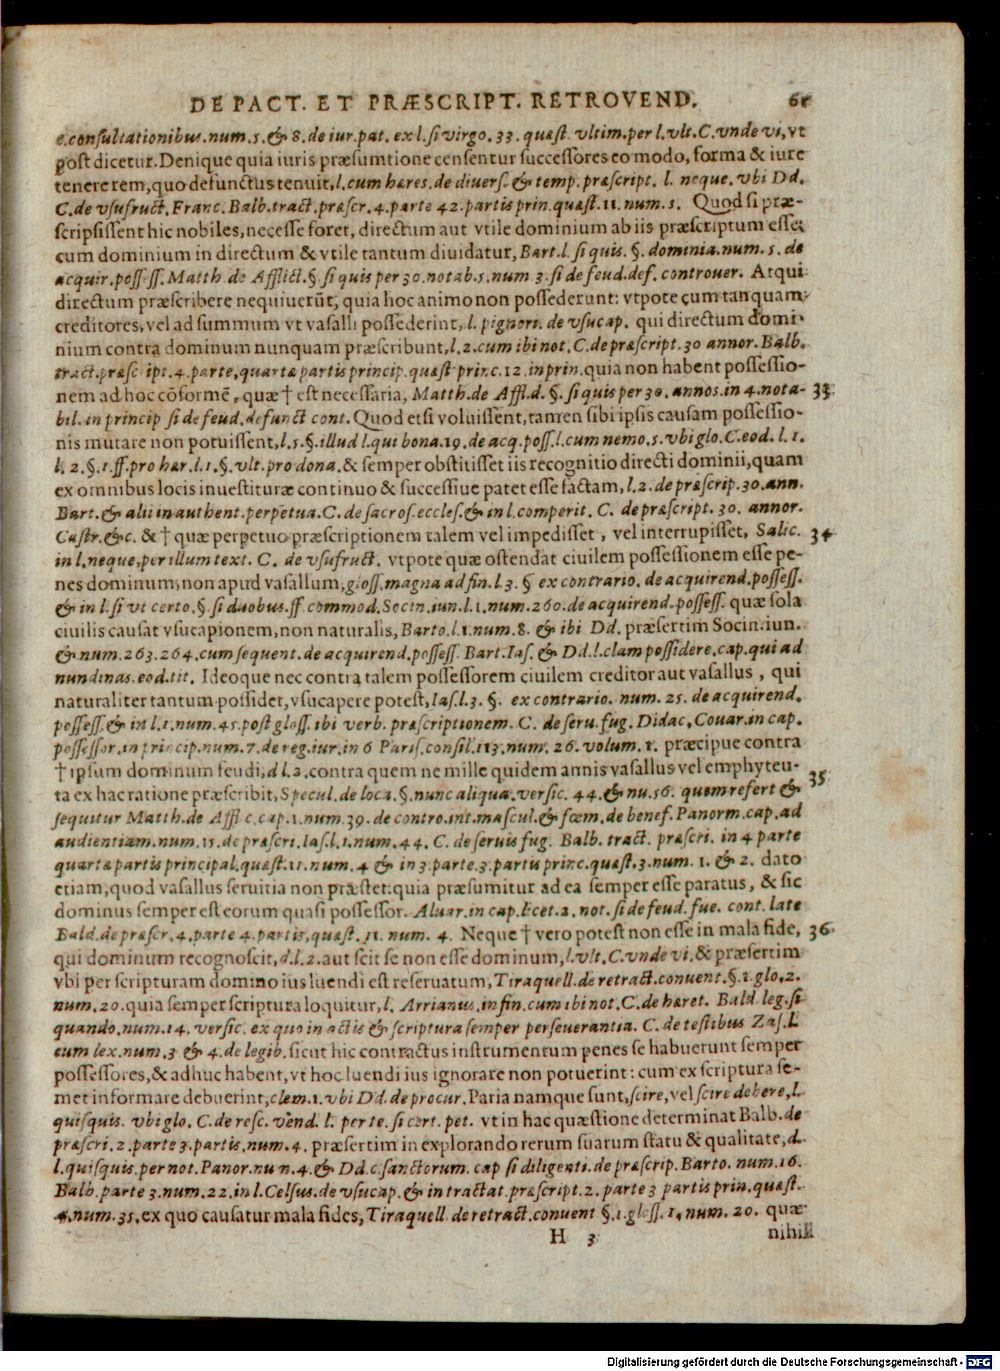 DE PACT. ET PRÆSCRIPT. RETROVEND. 61
e.consultationibus.num.5.& 8.de iur.pat. ex l.si virgo.33. quæst. vltim.per l.vlt.C.vnde vi,vt
post dicetur.Denique quia iuris præsumtione censentur successores eo modo, forma & iure
tenere rem,quo defunctus tenuit,l.cum hæres.de diuers.& temp.præscript. l. neque.vbi Dd.
C.de vsufruct.Franc.Balb.tract.præscr.4.parte 42.partis prin.quæst.11.num.1. Quod si præ-
scripsissent hic nobiles,necesse foret, directum aut vtile dominium ab iis præscriptum esse;
cum dominium in directum & vtile tantum diuidatur, Bart.l.si quis.§.dominia.num.5.de
acquir.possess.Matth.de Afflict.§.si quis per 30.notab.5.num 3.si de feud.def.controuer. Atqui
directum præscribere nequiuerūt, quia hoc animo non possederunt: vtpote cum tanquam
creditores, vel ad summum vt vasalli possederint, l. pignori.de vsucap. qui directum domi-
nium contra dominum nunquam præscribunt,l.2.cum ibi not.C.de præscript.30 annor.Balb.
tract.præsc ipt.4.parte,quartæ partis princip.quæst princ.12.in prin.quia non habent possessio-
nem ad hoc cōformē, quæ † est necessaria, Matth.de Affl.d. §.si quis per 30.annos.in 4.nota- 33.
bil.in princip si de feud.defunct cont.Quod etsi voluissent,tamen sibi ipsis causam possessio-
nis mutare non potuissent,l.5.§.illud l.qui bona.19.de acq.poss.l.cum nemo.5.vbi glo.C.eod. l. 1.
l. 2.§.1.ff.pro hær.l.1.§.vlt.pro dona.& semper obstitisset iis recognitio directi dominii,quam
ex omnibus locis inuestituræ continuo & successiue patet esse factam, l.2.de præscrip.30.ann.
Bart.& alii in authent.perpetua.C.de sacros.eccles.& in l.comperit. C. de præscript.30. annor.
Castr.&c. & † quæ perpetuo præscriptionem talem vel impedisset, vel interrupisset, Salic. 34
in l.neque,per illum text. C. de vsufruct. vtpote quæ ostendat ciuilem possessionem esse pe-
nes dominum,non apud vasallum,gloss.magna ad fin.l.3. § ex contrario.de acquirend.possess.
& in l.si vt certo.§.si duobus.ff.commod.Socin.iun.l.1.num.260.de acquirend.possess. quæ sola
ciuilis causat vsucapionem,non naturalis, Barto.l.1.num.8. & ibi Dd. præsertim Socin.iun.
& num.263.264.cum sequent.de acquirend.possess.Bart.Ias.& Dd.l.clam possidere.cap.qui ad
nundinas.eod.tit. Ideoque nec contra talem possessorem ciuilem creditor aut vasallus, qui
naturaliter tantum possidet,vsucapere potest,Ias.l.3. §. ex contrario. num. 25. de acquirend.
possess.& in l.1.num.45.post gloss.ibi verb. præscriptionem. C. de seru.fug.Didac.Couar.in cap.
possessor.in princip.num.7.de reg.iur.in 6 Paris.consil.113.num. 26.volum.1. præcipue contra
† ipsum dominum feudi,d l.2.contra quem ne mille quidem annis vasallus vel emphyteu- 35
ta ex hac ratione præscribit,Specul.de loca.§.nunc aliqua.versic. 44.& nu.56. quem refert &
sequitur Matth.de Affl c.cap.1.num.39.de contro.int.mascul.& fœm.de benef.Panorm.cap.ad
audientiam.num.11.de præscri.Ias.l.1.num.44. C.de seruis fug. Balb. tract. præscri. in 4 parte
quartæ partis principal.quæst.11.num.4 & in 3.parte.3.partis princ.quæst.3.num. 1. & 2. dato
etiam,quod vasallus seruitia non præstet:quia præsumitur ad ea semper esse paratus, & sic
dominus semper est eorum quasi possessor. Aluar.in cap.licet.2.not.si de feud.fue. cont. late
Bald.de præscr.4.parte 4.partis,quæst. 11. num. 4. Neque † vero potest non esse in mala fide, 36.
qui dominum recognoscit,d.l.2.aut scit se non esse dominum,l.vlt.C.vnde vi.& præsertim
vbi per scripturam domino ius luendi est reseruatum,Tiraquell.de retract.conuent.§.1.glo.2.
num.20.quia semper scriptura loquitur,l. Arrianus.in fin.cum ibi not.C.de hæret. Bald.leg.si
quando.num.14.versic. ex quo in actis & scriptura semper perseuerantia. C.de testibus Zas.l.
cum lex.num.3 & 4.de legib.sicut hic contractus instrumentum penes se habuerunt semper
possessores,& adhuc habent,vt hoc luendi ius ignorare non potuerint: cum ex scriptura se-
met informare debuerint,clem.1.vbi Dd.de procur.Paria namque sunt,scire,vel scire debere,l.
quisquis. vbi glo. C.de resc.vend. l. per te.si cert.pet. vt in hac quæstione determinat Balb.de
præscri.2.parte 3.partis,num.4. præsertim in explorando rerum suarum statu & qualitate,d.
l.quisquis.per not.Panor.nu n.4.& Dd.c.sanctorum. cap si diligenti.de præscrip.Barto. num.16.
Balb.parte 3.num.22.in l.Celsus.de vsucap.& in tractat.præscript.2.parte 3 partis prin.quæst.
4.num.35.ex quo causatur mala fides,Tiraquell.de retract.conuent §.1.gloss. 1.num. 20. quæ
H 3 nihil
Digitalisierung gefördert durch die Deutsche Forschungsgemeinschaft - DFG